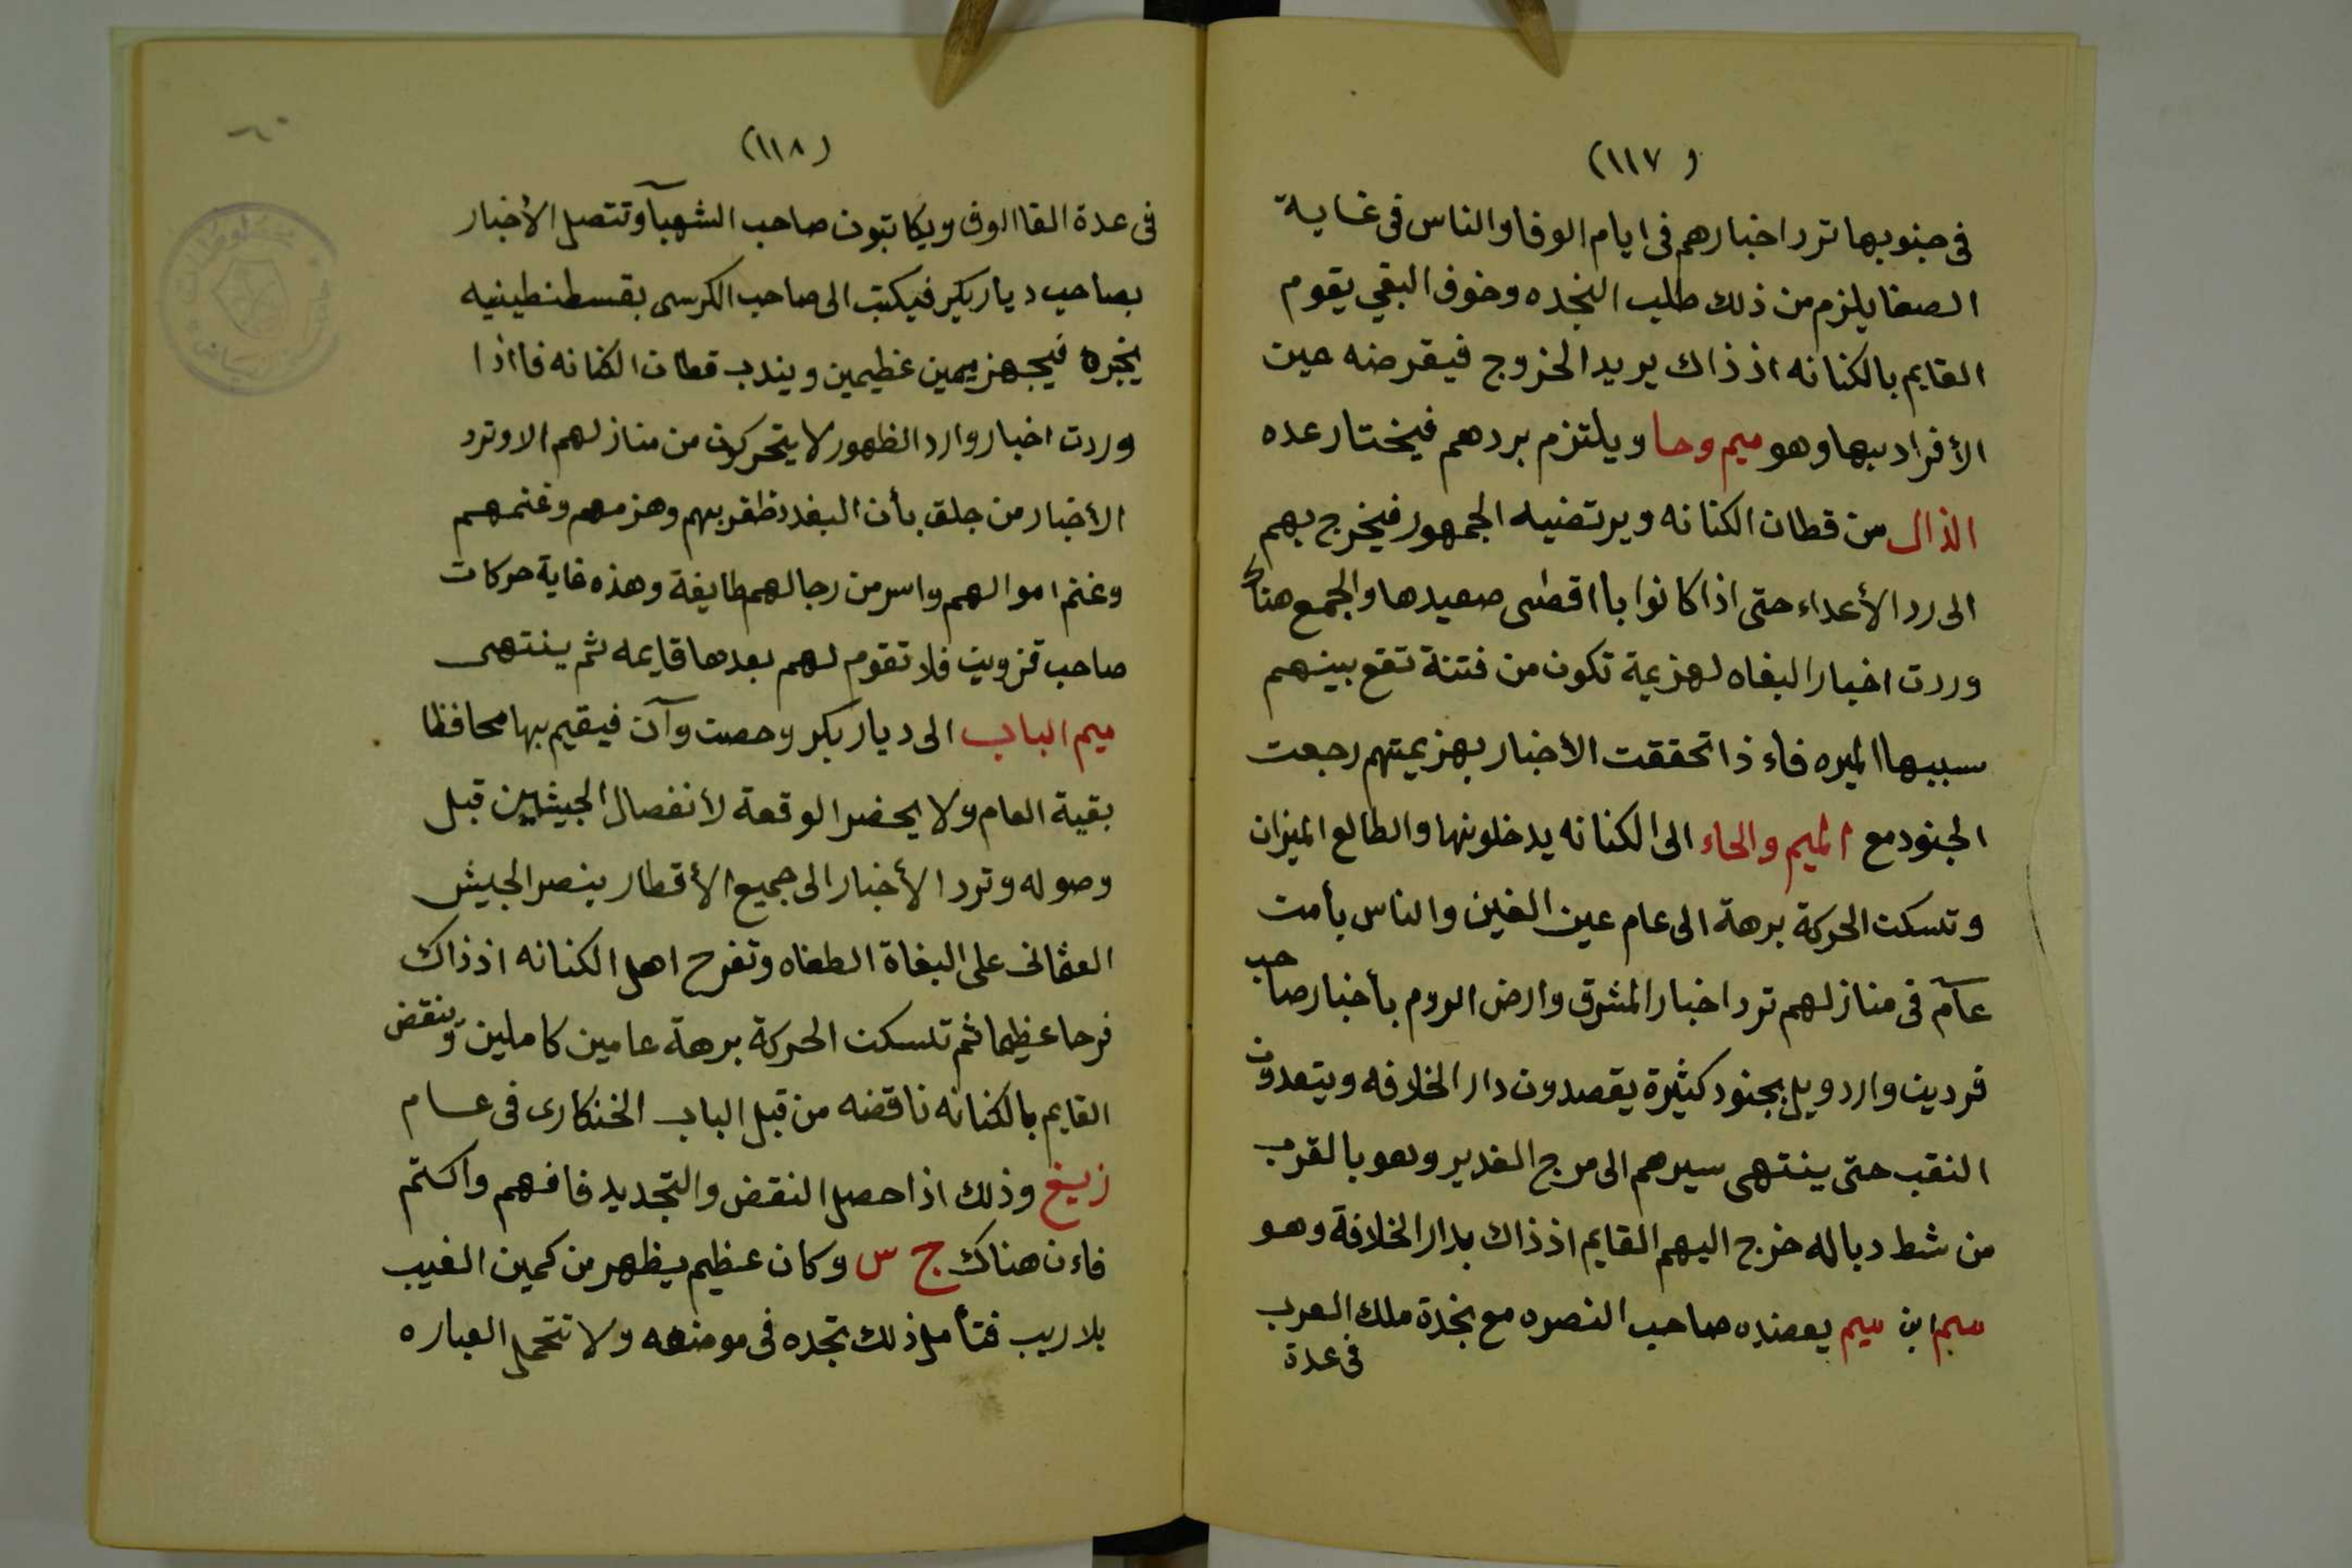 (١١٧)
فى جنوبها ترد اخبارهم فى ايام الوفا والناس فى غاية
الصفا يلزم من ذلك طلب النجده وخوف البقى يقوم
القايم بالكنانه اذ ذاك يريد الخروج فيقرضه عين
الأفراد بها وهو ميم وحا ويلتزم بردهم فيختار عده
الذال من قطان الكنانه ويرتضيه الجمهور فيخرج بهم
الى رد الأعداء حتى اذا كانوا باقصى صعيدها والجمع هناك
وردت اخبار البغاه لهزيمة تكون من فتنة تقع بينهم
سببها الميره فاء ذا تحققت الأخبار بهزيمتهم رجعت
الجنود مع الميم والحاء الى الكنانه يدخلونها والطالع الميزان
وتسكت الحركة برهة الى عام عين الغين والناس بأمت
عآم فى منازلهم ترد اخبار المشرق وارض الروم بأخبار صاحب
قردين واردويل بجنود كثيرة يقصدون دار الخلافه ويتعدون
النقب حتى ينتهى سيرهم الى مرج الغدير وهو بالقرب
من شط دباله خرج اليهم القايم اذ ذاك بدار الخلافة وهو
ميم ابن ميم يعضده صاحب النصره مع نجدة ملك العرب
فى عدة
(١١٨)
٦٠
فى عدة القا الوف ويكاتبون صاحب الشهبآ وتتصل الأخبار
بصاحب ديار بكير فيكتب الى صاحب الكرسى بقسطنطينيه
يخبره فيجهز ميمين عظيمين ويندب قطان الكنانه فااذا
وردت اخبار وارد الظهور لا يتحركون من منازلهم الا وترد
الأخبار من جلق بأن البغدد ظفر بهم وهزمهم وغنمهم
وغنم اموالهم واسر من رجالهم طايفة وهذه غاية حركات
صاحب قزوين فلا تقوم لهم بعدها قايمه ثم ينتهى
ميم الباب الى ديار بكر وحصت وآن فيقيم بها محافظا
بقية العام ولا يحضر الوقعة لأنفصال الجيشين قبل
وصوله وترد الأخبار الى جميع الأقطار بنصر الجيش
العثمانى على البغاة الطغاه وتفرح اهل الكنانه اذ ذاك
فرحا عظيما ثم تسكت الحركة برهة عامين كاملين وينقض
القايم بالكنانه ناقضه من قبل الباب الخنكارى فى عام
زيغ وذلك اذا حصل النقض والتجديد فافهم واكتم
فاء ن هناك ج س وكان عظيم يظهر من كمين الغيب
بلا ريب فتأمل ذلك تجده فى موضعه ولا تتحمل العباره